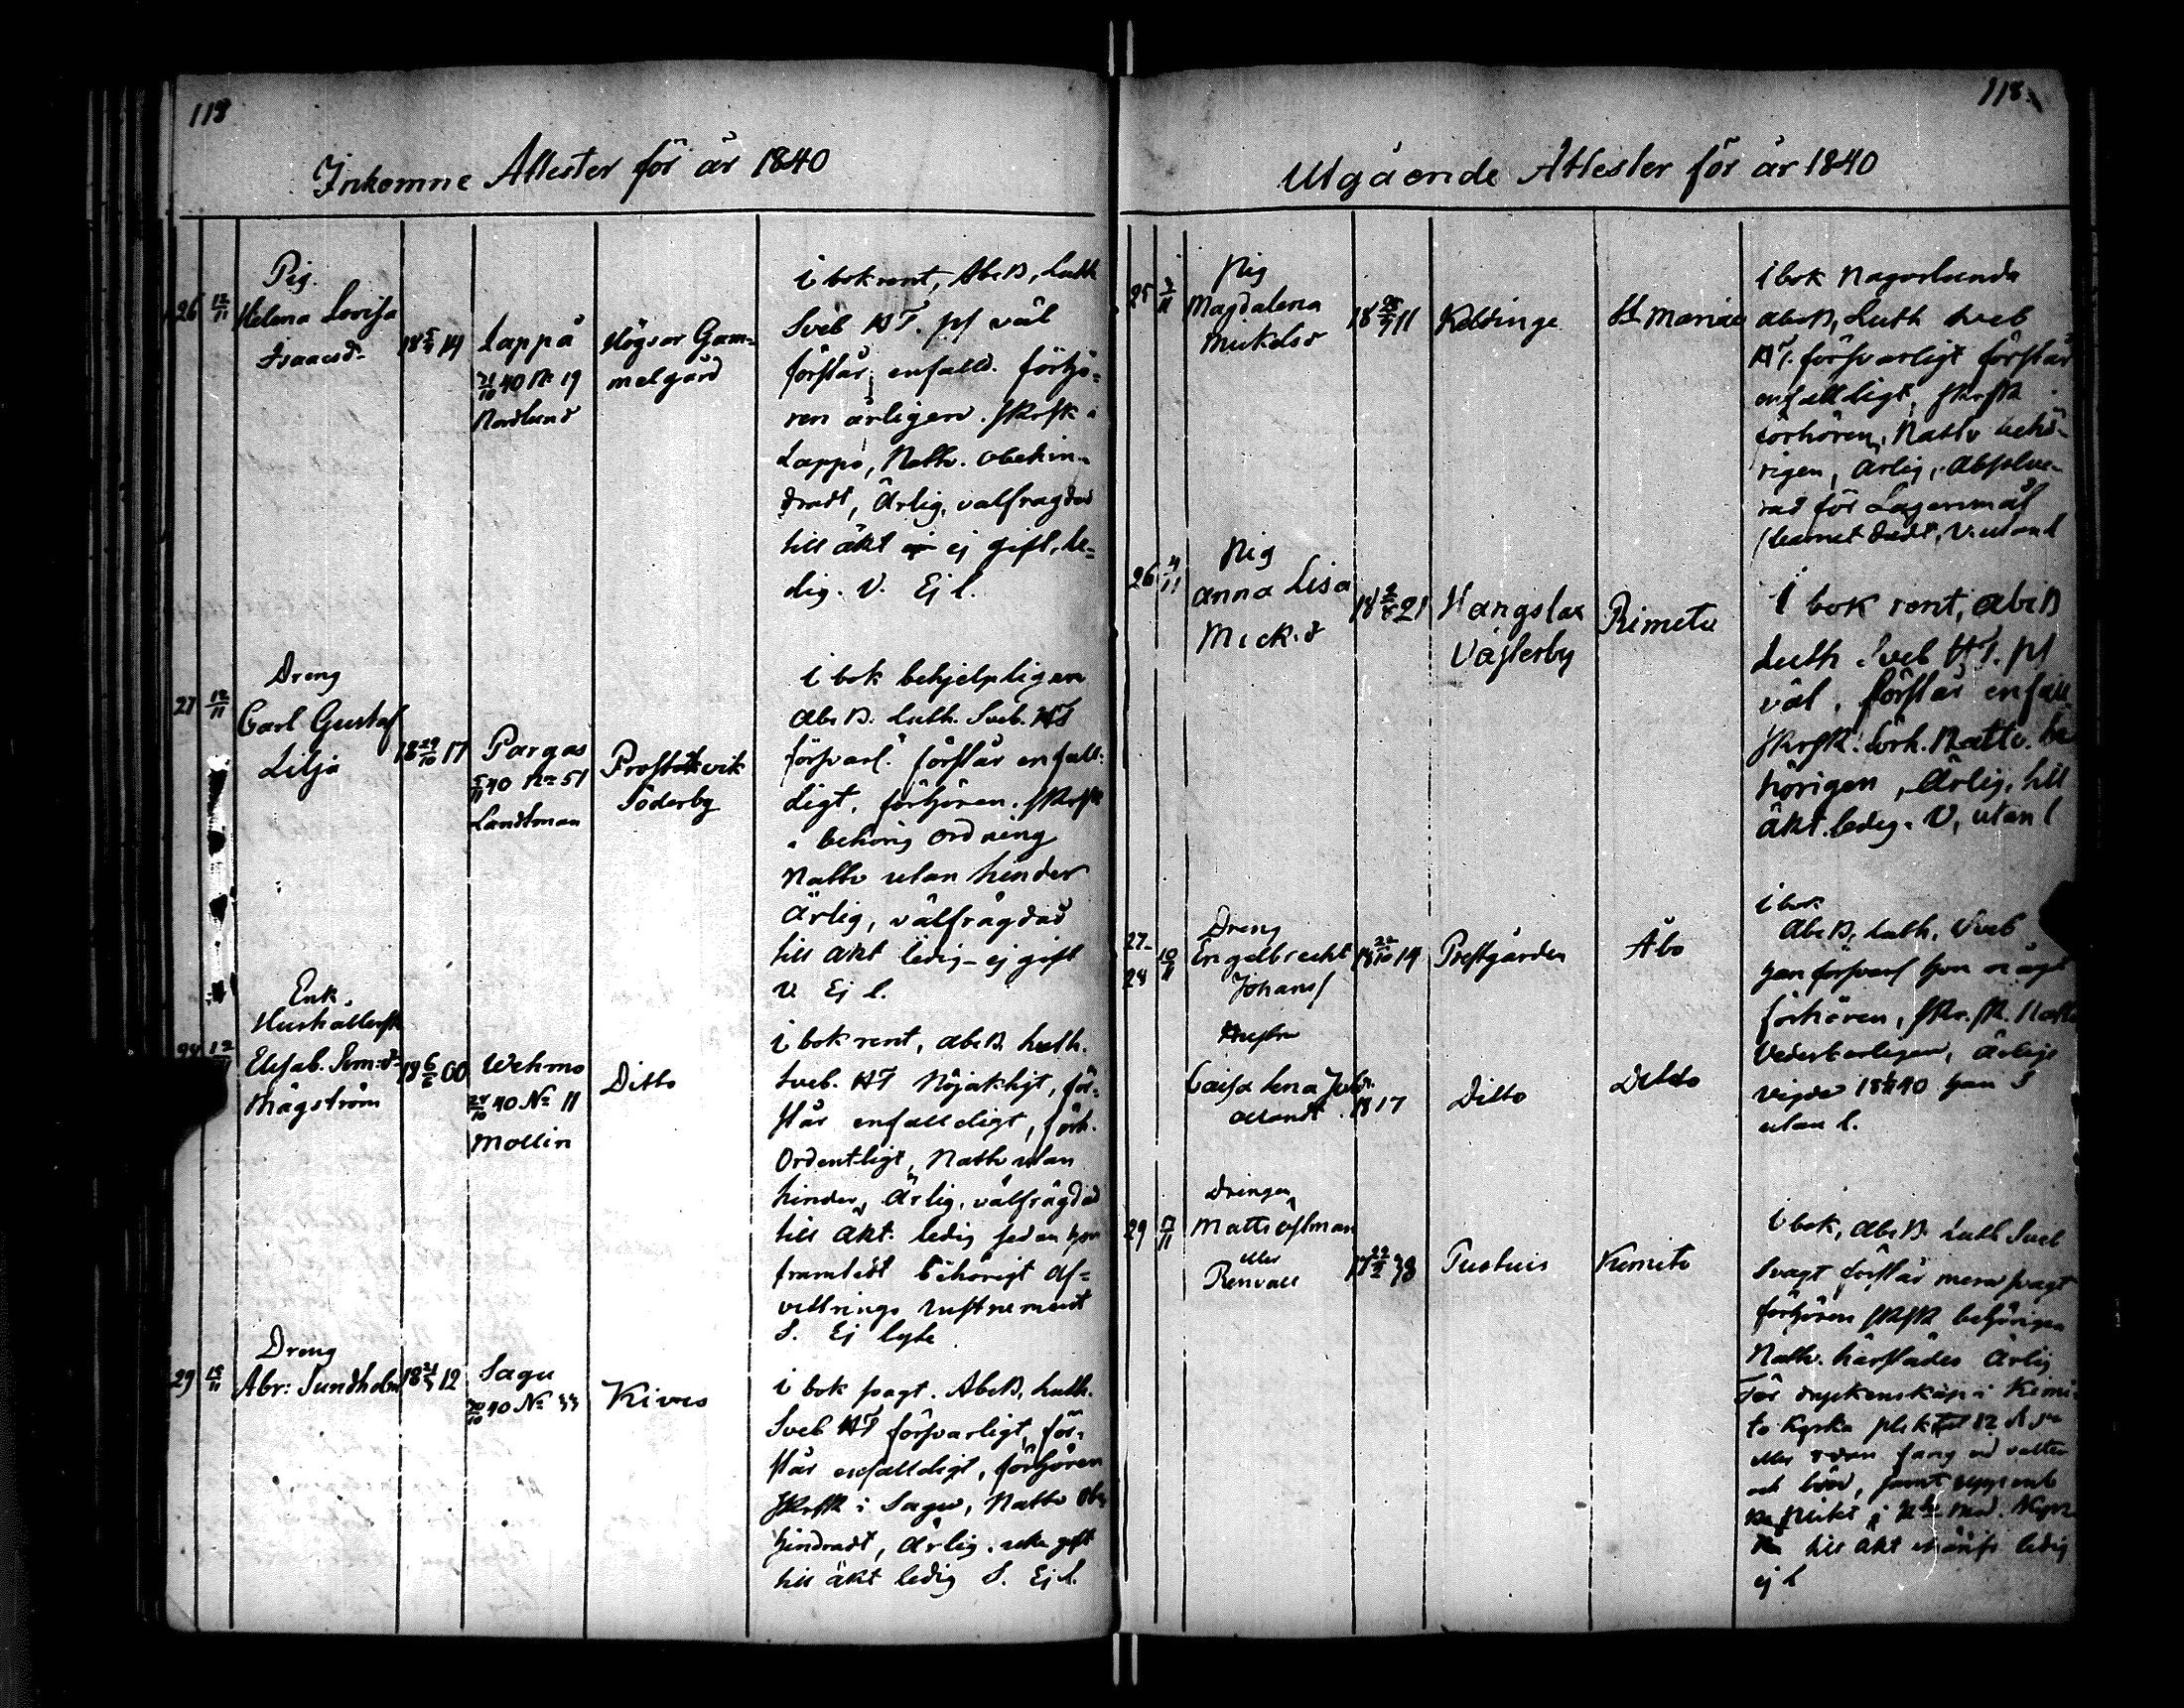 118
Inkomne Attester för år 1840
26 12/11
Pig.
Helena Lovisa
Isaacsd.
Lappå
21/10 40 No 19
Nordlund
Högsar Gam=
melgård
i bok rent, AbcB, Luth
Sveb HT. ps väl
förstår enfald. förhö=
ren årligen. skrsk i
Lappo, Nattv. obehin=
dradt, Ärlig, välfrägdad
till äkt ej gift, le=
dig. V. Ej l.
27 12/11
Dreng
Carl Gustaf
Lilja
18 29/10 17
Pargas
5/11 40 No 51
Landtman
Prostvik
Söderby
i bok behjelpligen
AbcB. Luth. Sveb. HT
försvarl. förstår enfall=
digt, förhören. skrsk
i behörig ordning
Nattv utan hinder
Ärlig, välfrägdad
till äkt ledig - ej gift
V. Ej l.
12/11
Enk.
Hushållersk
Elisab. Sem:d.
Hägström
18 6/6 00
Wehmo
24/10 40 No 11
Mollin
Ditto
i bok rent, abcB. Luth.
Sveb. HT Nöjaktigt, för=
står enfalldigt, förh.
Ordentligt, Nattv utan
hinder, Ärlig, välfrägdad
till äkt. ledig sedan hon
framtedt behörigt af=
vittrings instrument
S. Ej lyte
29 15/11
Dreng
Abr: Sundholm
18 21/3 12
Sagu
40 No 33
Kives
i bok svagt. AbcB, Luth.
Sveb HT försvarligt, för=
står enfalldigt, förhören
skrsk i Sagu, Nattv obe
hindradt, Ärlig. icke gift
till äkt ledig S. Ej l.
118.
Utgående Attester för år 1840
25 3/11
Pig
Magdalena
Mickelsd
Keldinge
St Mariæ
i bok Nagorlunda
abcB, Luth Sveb
HT. försvarligt förstår
enfalldigt, skrsk
förhören, Nattv behö=
rigen, Ärlig, Absolve=
rad för Lägersmål
(barnet dödt, V. utan l
26 4/11
Pig
Anna Lisa
Mick:d
Hangslax
Västerby
Rimito
i bok rent, abcB
Luth Sveb HT. ps
väl, förstår enfall
skrsk. förh. Nattv. be
hörigen, Ärlig, till
äkt. ledig. V, utan l
27-
28 10/11
Dreng
Engelbrecht
Johanss
18 22/10 19
Prestgården
Åbo
i bok
AbcB, Luth, Sveb
han försvarl hon något
förhören, skr.sk. Nattv
Vederbörligen, Ärlige
vigde 40 han S
utan l.
Hustru
Caisa Lena
1817
Ditto
Ditto
29 17/11
Drengen
Matts Östman
eller
Renvall
Kimito
i bok, abcB. Luth Sveb
Svagt förstår mera svagt
förhören skrsk behörigen
Nattv. härstädes Ärlig
För dryckenskap i Kimi=
to Kyrka
eller fäng vid vatten
och bröd, samt uppenb
till äkt ledig
ej l